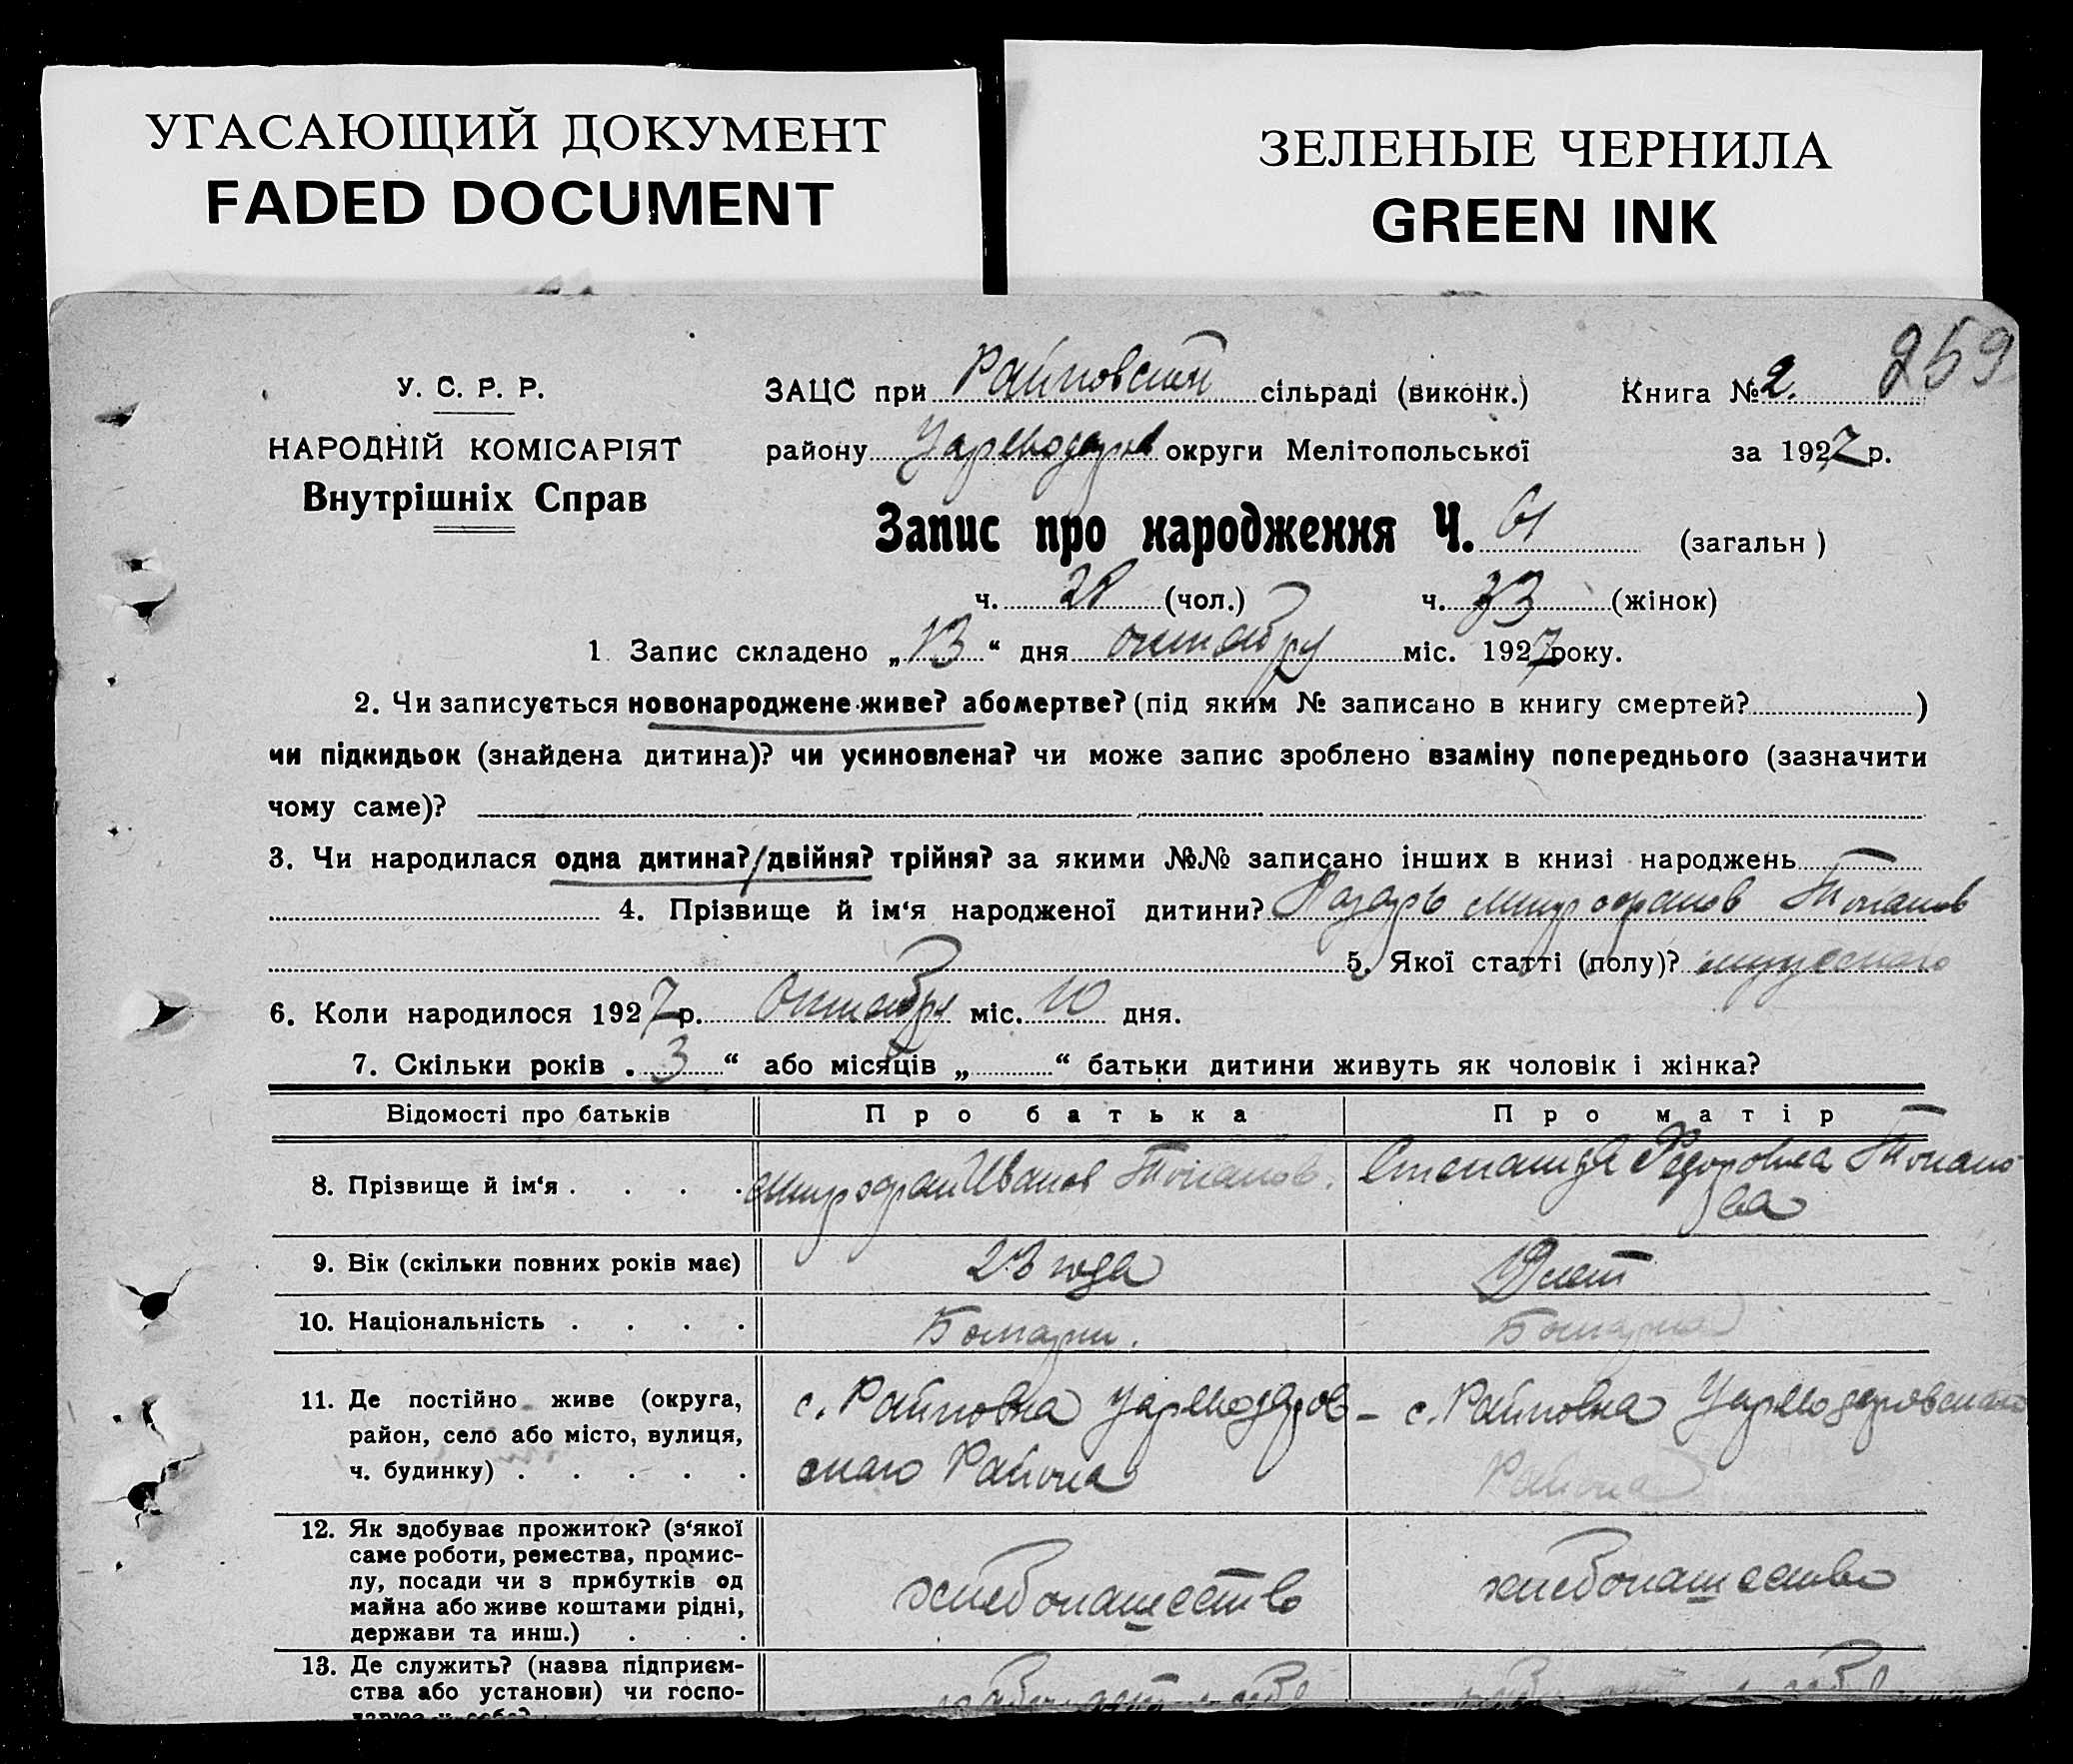 УГАСАЮЩИЙ ДОКУМЕНТ
FADED DOCUMENT
ЗЕЛЕНЫЕ ЧЕРНИЛА
GREEN INK
259
У. С. Р. Р.
НАРОДНІЙ КОМІСАРІЯТ
Внутрішніх Справ
ЗАЦС при Райновской сільраді (виконк.) Книга № 2.
району округи Мелітопольської за 1927 р.
Запис про народження Ч. 61 (загальн)
ч. 28 (чол.) ч. 33 (жінок)
1. Запис складено „13“ дня октября міс. 1927 року.
2. Чи записується новонароджене живе? або мертве? (під яким № записано в книгу смертей? )
чи підкидьок (знайдена дитина)? чи усиновлена? чи може запис зроблено взаміну попереднього (зазначити
чому саме)?
3. Чи народилася одна дитина? / двійня? трійня? за якими №№ записано інших в книзі народжень
4. Прізвище й ім‘я народженої дитини? Назарь Митрофанов Топалов
5. Якої статті (полу)? мужского
6. Коли народилося 1927 р. Октября міс. 10 дня.
7. Скільки років „3“ або місяців „ “ батьки дитини живуть як чоловік і жінка?
Відомості про батьків Про батька Про матір
8. Прізвище й ім‘я . . . . Митрофан Иванов Топалов. Степанида Федоровна Топало-
ва
9. Вік (скільки повних років має) 23 года 19 лет
10. Національність . . . . Болгарин. Болгарка
11. Де постійно живе (округа,
район, село або місто, вулиця,
ч. будинку) . . . . .
с. Райновка Цареводаров-
скаго Района
с. Райновка Цареводаровскаго
Района
12. Як здобуває прожиток? (з‘якої
саме роботи, ремества, промис-
лу, посади чи з прибутків од
майна або живе коштами рідні,
держави та инш.) . . .
хлебопашество
хлебопашество
13. Де служить? (назва підприєм-
ства або установи) чи госпо-